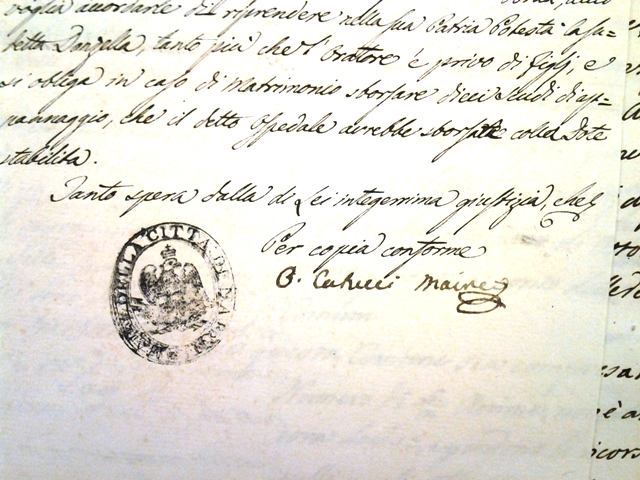 voglia accordarle di riprendere nella sua Patria Potestà la su=
detta Donzella, tanto più che l'Oratore è privo di figlj, e
si obliga in caso di Matrimonio sborsare dieci scudi di ap=
pannaggio, che il detto Ospedale avrebbe sborsate colla Dote
stabilita.
Tanto spera dalla di Lei integerrima giustizia, che
Per copia conforme
Maire
DELLA CITTÀ DI NARNI